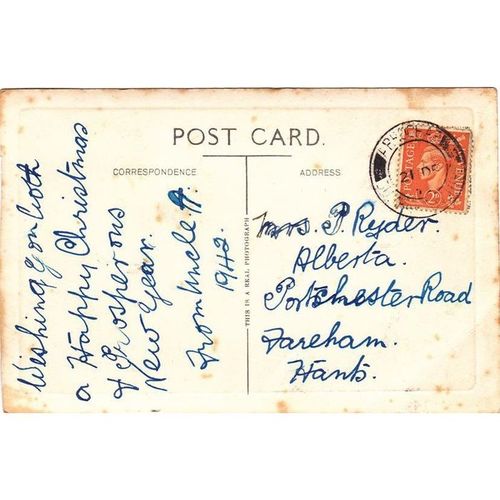 POST CARD.
CORRESPONDENCE
ADDRESS
Wishing you both
a Happy Christmas
& Prosperous
New Year.
From Uncle A.
1942.
THIS IS A REAL PHOTOGRAPH
Mrs. P. Ryder.
Alberta.
Portchester Road
Fareham.
Hants.
21 DE
POSTAGE
2D